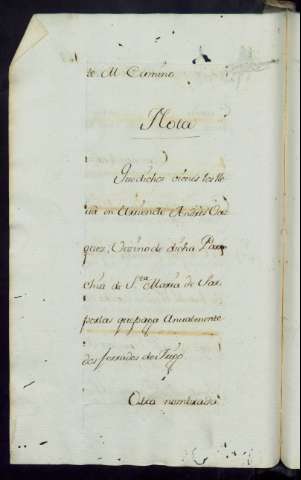 de M. Camino
Nota
Que dichos vienes los lle
va en Arriendo Andres Vaz
quez, Vezino de dicha Parro
chia de Sta. Maria de
por las que paga Anualmente
dos ferrados de Trigo
Otra nombrada